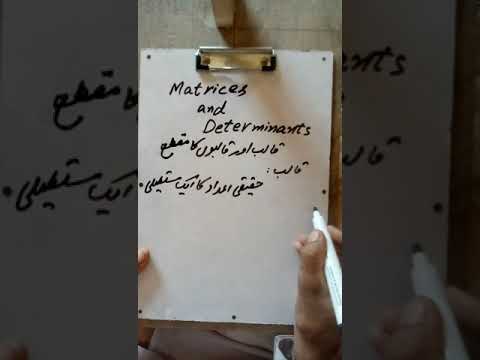 Matrices
and
Determinants
قالب اور قالبوں کا مقطع
قالب:
حقیقی اعداد کا ایک مستطیلی